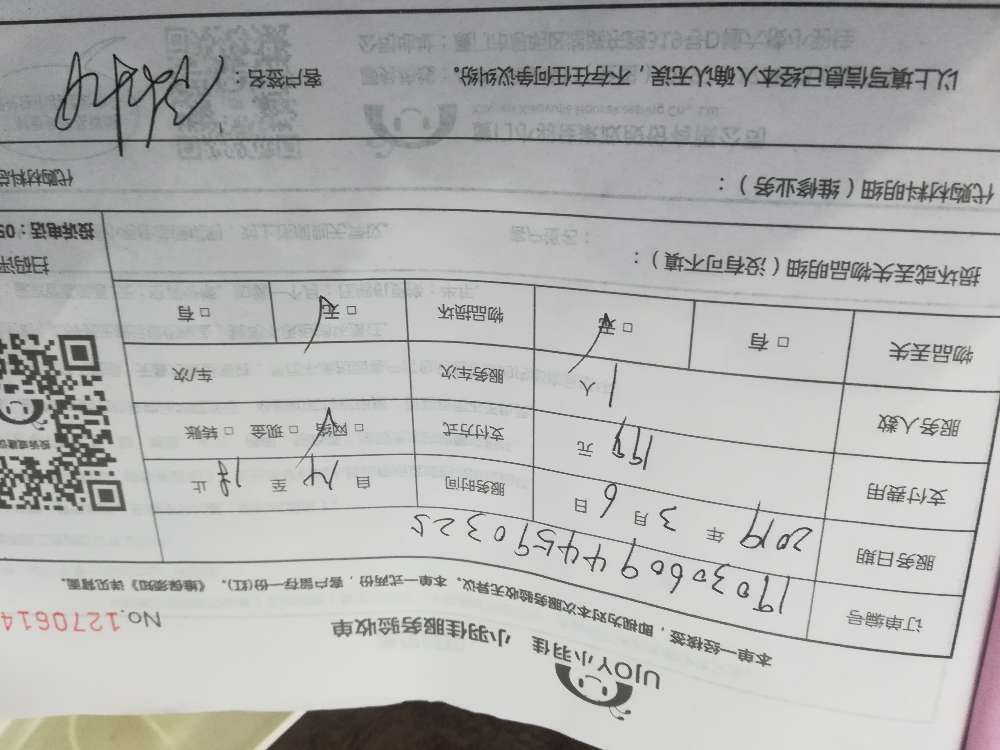 UJOY小羽佳
小羽佳服务验收单
No.1270614
本单一经接签，即视为对本次服务验收无异议。本单一式两份，客户留存一份(红)。《维保须知》详见背面。
订单编号 1903060944590325
服务日期 2019 年 3 月 6 日 服务时间 自 14 至 18 止
支付费用 199 元 支付方式 □ 网络 □ 现金 □ 转账
服务人数 1 人 服务车次 车/次
物品丢失 □ 有 □ 无 物品损坏 □ 无 □ 有
投诉或建议
扫码评
投诉电话：05
损坏或丢失物品明细（没有可不填）：
代购材料明细（维修业务）：
代购材料总
以上填写信息已经本人确认无误，不存在任何争议纠纷。
客户签名：